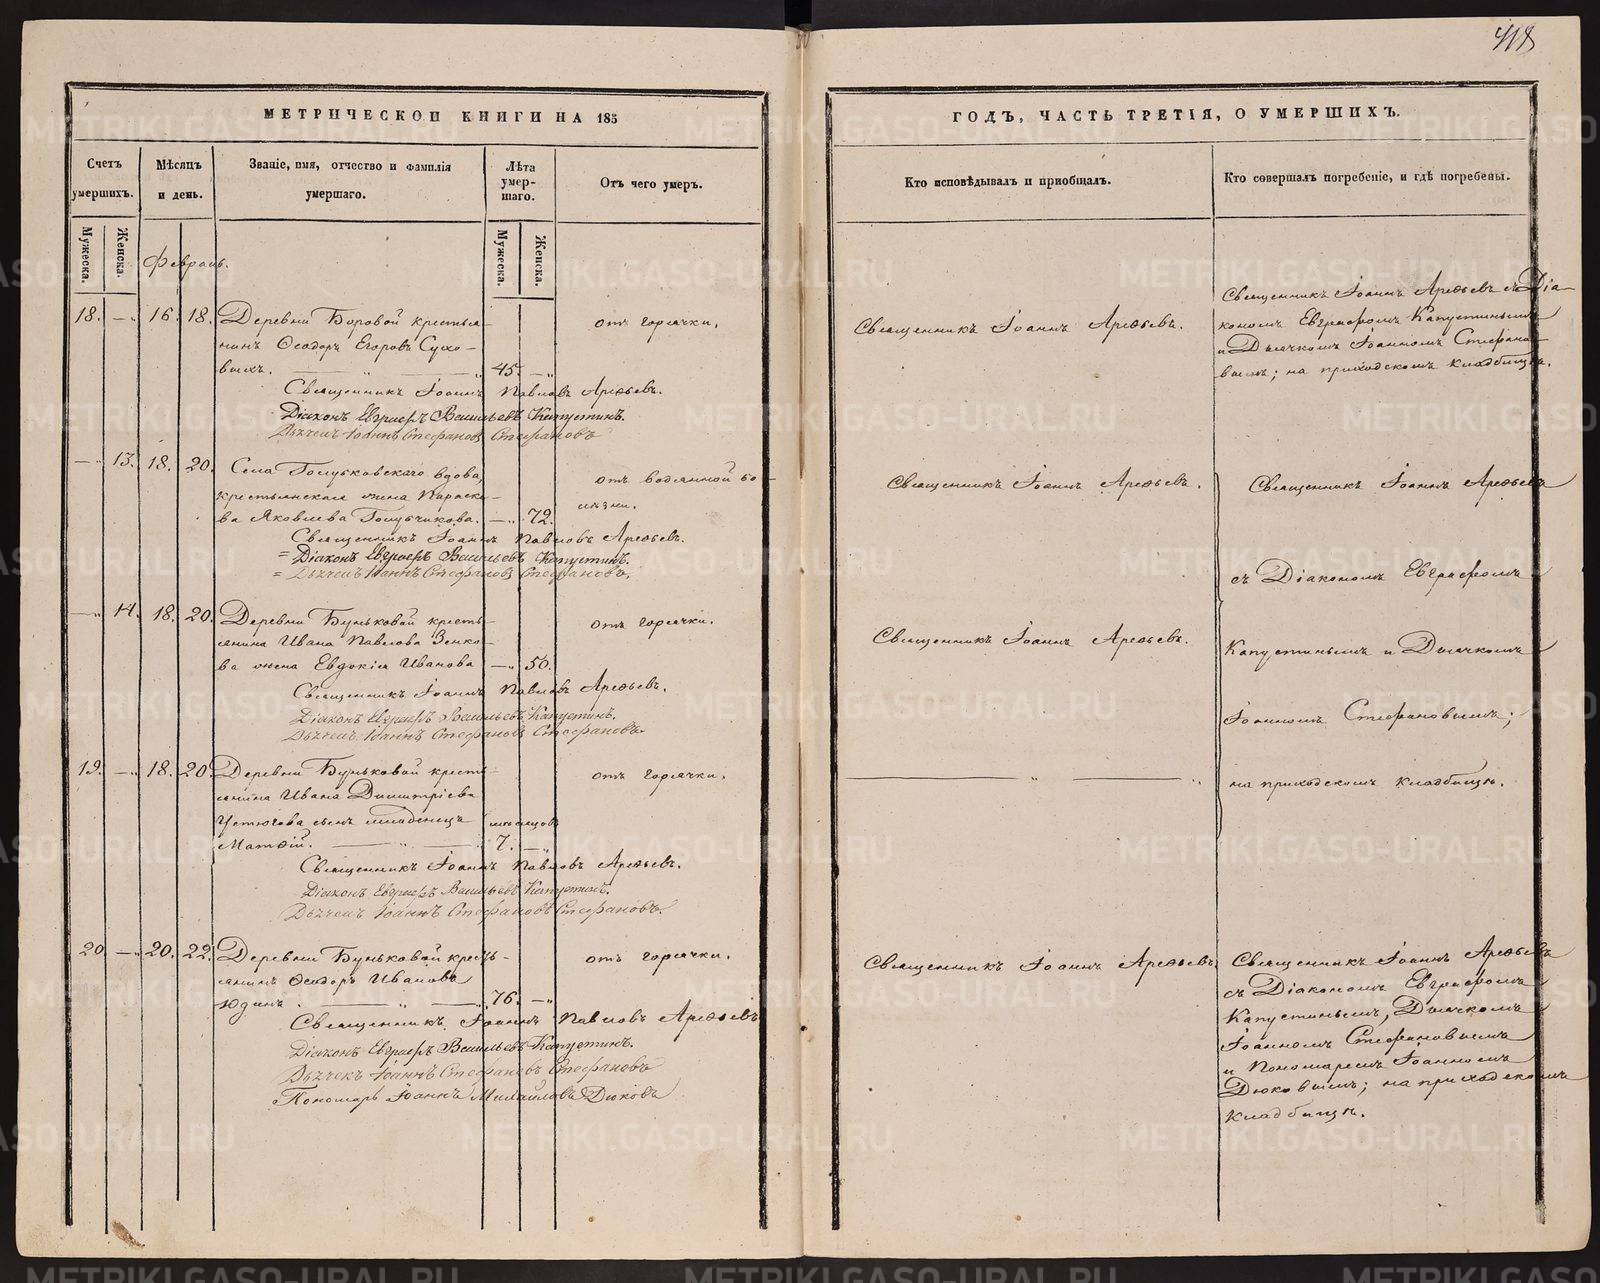 418
МЕТРИЧЕСКОЙ КНИГИ НА 185
ГОДЪ, ЧАСТЬ ТРЕТІЯ, О УМЕРШИХЪ.
Счетъ умершихъ.
Мѣсяцъ и день.
Званіе, имя, отчество и фамилія умершаго.
Лѣта умер-шаго.
Отъ чего умеръ.
Кто исповѣдывалъ и приобщалъ.
Кто совершалъ погребеніе, и гдѣ погребены.
Мужеска.
Женска.
Мужеска.
Женска.
Февраль.
18. — 16. 18. Деревни Боровой крестья-
нинъ Ѳеодоръ Егоровъ Сухо-
выхъ. 45.
отъ горячки.
Священникъ Іоаннъ Арефьевъ.
Священникъ Іоаннъ Арефьевъ съ Діа-
кономъ Евграфомъ Капустинымъ
и Дьячкомъ Іоанномъ Стефано-
вымъ; на приходскомъ кладбищѣ.
Священникъ Іоаннъ Павловъ Арефьевъ.
Діаконъ Евграфъ Васильевъ Капустинъ.
Дьячекъ Іоаннъ Стефановъ Стефановъ
— 13. 18. 20. Села вдова,
крестьянская жена Параске-
ва Яковлева Голубчикова. — 72.
отъ водянной бо-
лѣзни.
Священникъ Іоаннъ Арефьевъ.
Священникъ Іоаннъ Павловъ Арефьевъ.
= Діаконъ Евграфъ Васильевъ Капустинъ.
= Дьячекъ Іоаннъ Стефановъ Стефановъ.
— 14. 18. 20. Деревни Буньковой кресть-
янина Ивана Павлова Зенко-
ва жена Евдокія Иванова — 50.
отъ горячки.
Священникъ Іоаннъ Арефьевъ.
Священникъ Іоаннъ Павловъ Арефьевъ.
Діаконъ Евграфъ Васильевъ Капустинъ.
Дьячекъ Іоаннъ Стефановъ Стефановъ
19. — 18. 20. Деревни Буньковой кресть-
янина Ивана Димитріева
Устюгова сынъ младенецъ мѣсяцовъ
Матѳій. 7. —
отъ горячки.
Священникъ Іоаннъ Арефьевъ
съ Діакономъ Евграфомъ
Капустинымъ и Дьячкомъ
Іоанномъ Стефановымъ;
на приходскомъ кладбищѣ.
Священникъ Іоаннъ Павловъ Арефьевъ.
Діаконъ Евграфъ Васильевъ Капустинъ.
Дьячекъ Іоаннъ Стефановъ Стефановъ.
20. — 20. 22. Деревни Буньковой кресть-
янинъ Ѳеодоръ Ивановъ
Юдинъ. 76. —
отъ горячки.
Священникъ Іоаннъ Арефьевъ.
Священникъ Іоаннъ Арефьевъ
съ Діакономъ Евграфомъ
Капустинымъ, Дьячкомъ
Іоанномъ Стефановымъ
и Пономаремъ Іоанномъ
Дюковымъ; на приходскомъ
кладбищѣ.
Священникъ Іоаннъ Павловъ Арефьевъ
Діаконъ Евграфъ Васильевъ Капустинъ.
Дьячекъ Іоаннъ Стефановъ Стефановъ
Пономарь Іоаннъ Михайловъ Дюковъ
METRIKI.GASO-URAL.RU